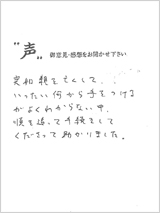 "声" 御意見・感想をお聞かせ下さい
実父親を亡くして、
いったい何から手をつける
がよくわからない中、
順を追って手続をして
くださって助かりました。